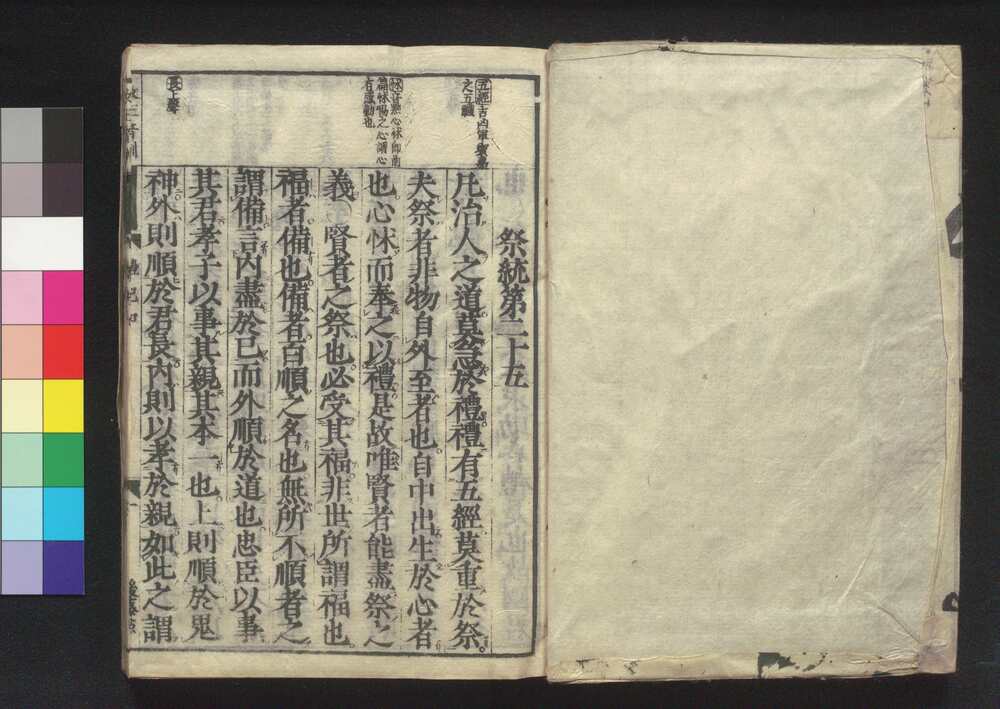 祭統第二十五
凡治人之道莫急於禮禮有五經莫重於祭
夫祭者非物自外至者也自中出生於心者
也心怵而奉之以禮是故唯賢者能盡祭之
義賢者之祭也必受其福非世所謂福也
福者備也備者百順之名也無所不順者之
謂備言內盡於己而外順於道也忠臣以事
其君孝子以事其親其本一也上則順於鬼
神外則順於君長內則以孝於親如此之謂
五經吉凶軍賓嘉
之五禮
有感動也
長上聲